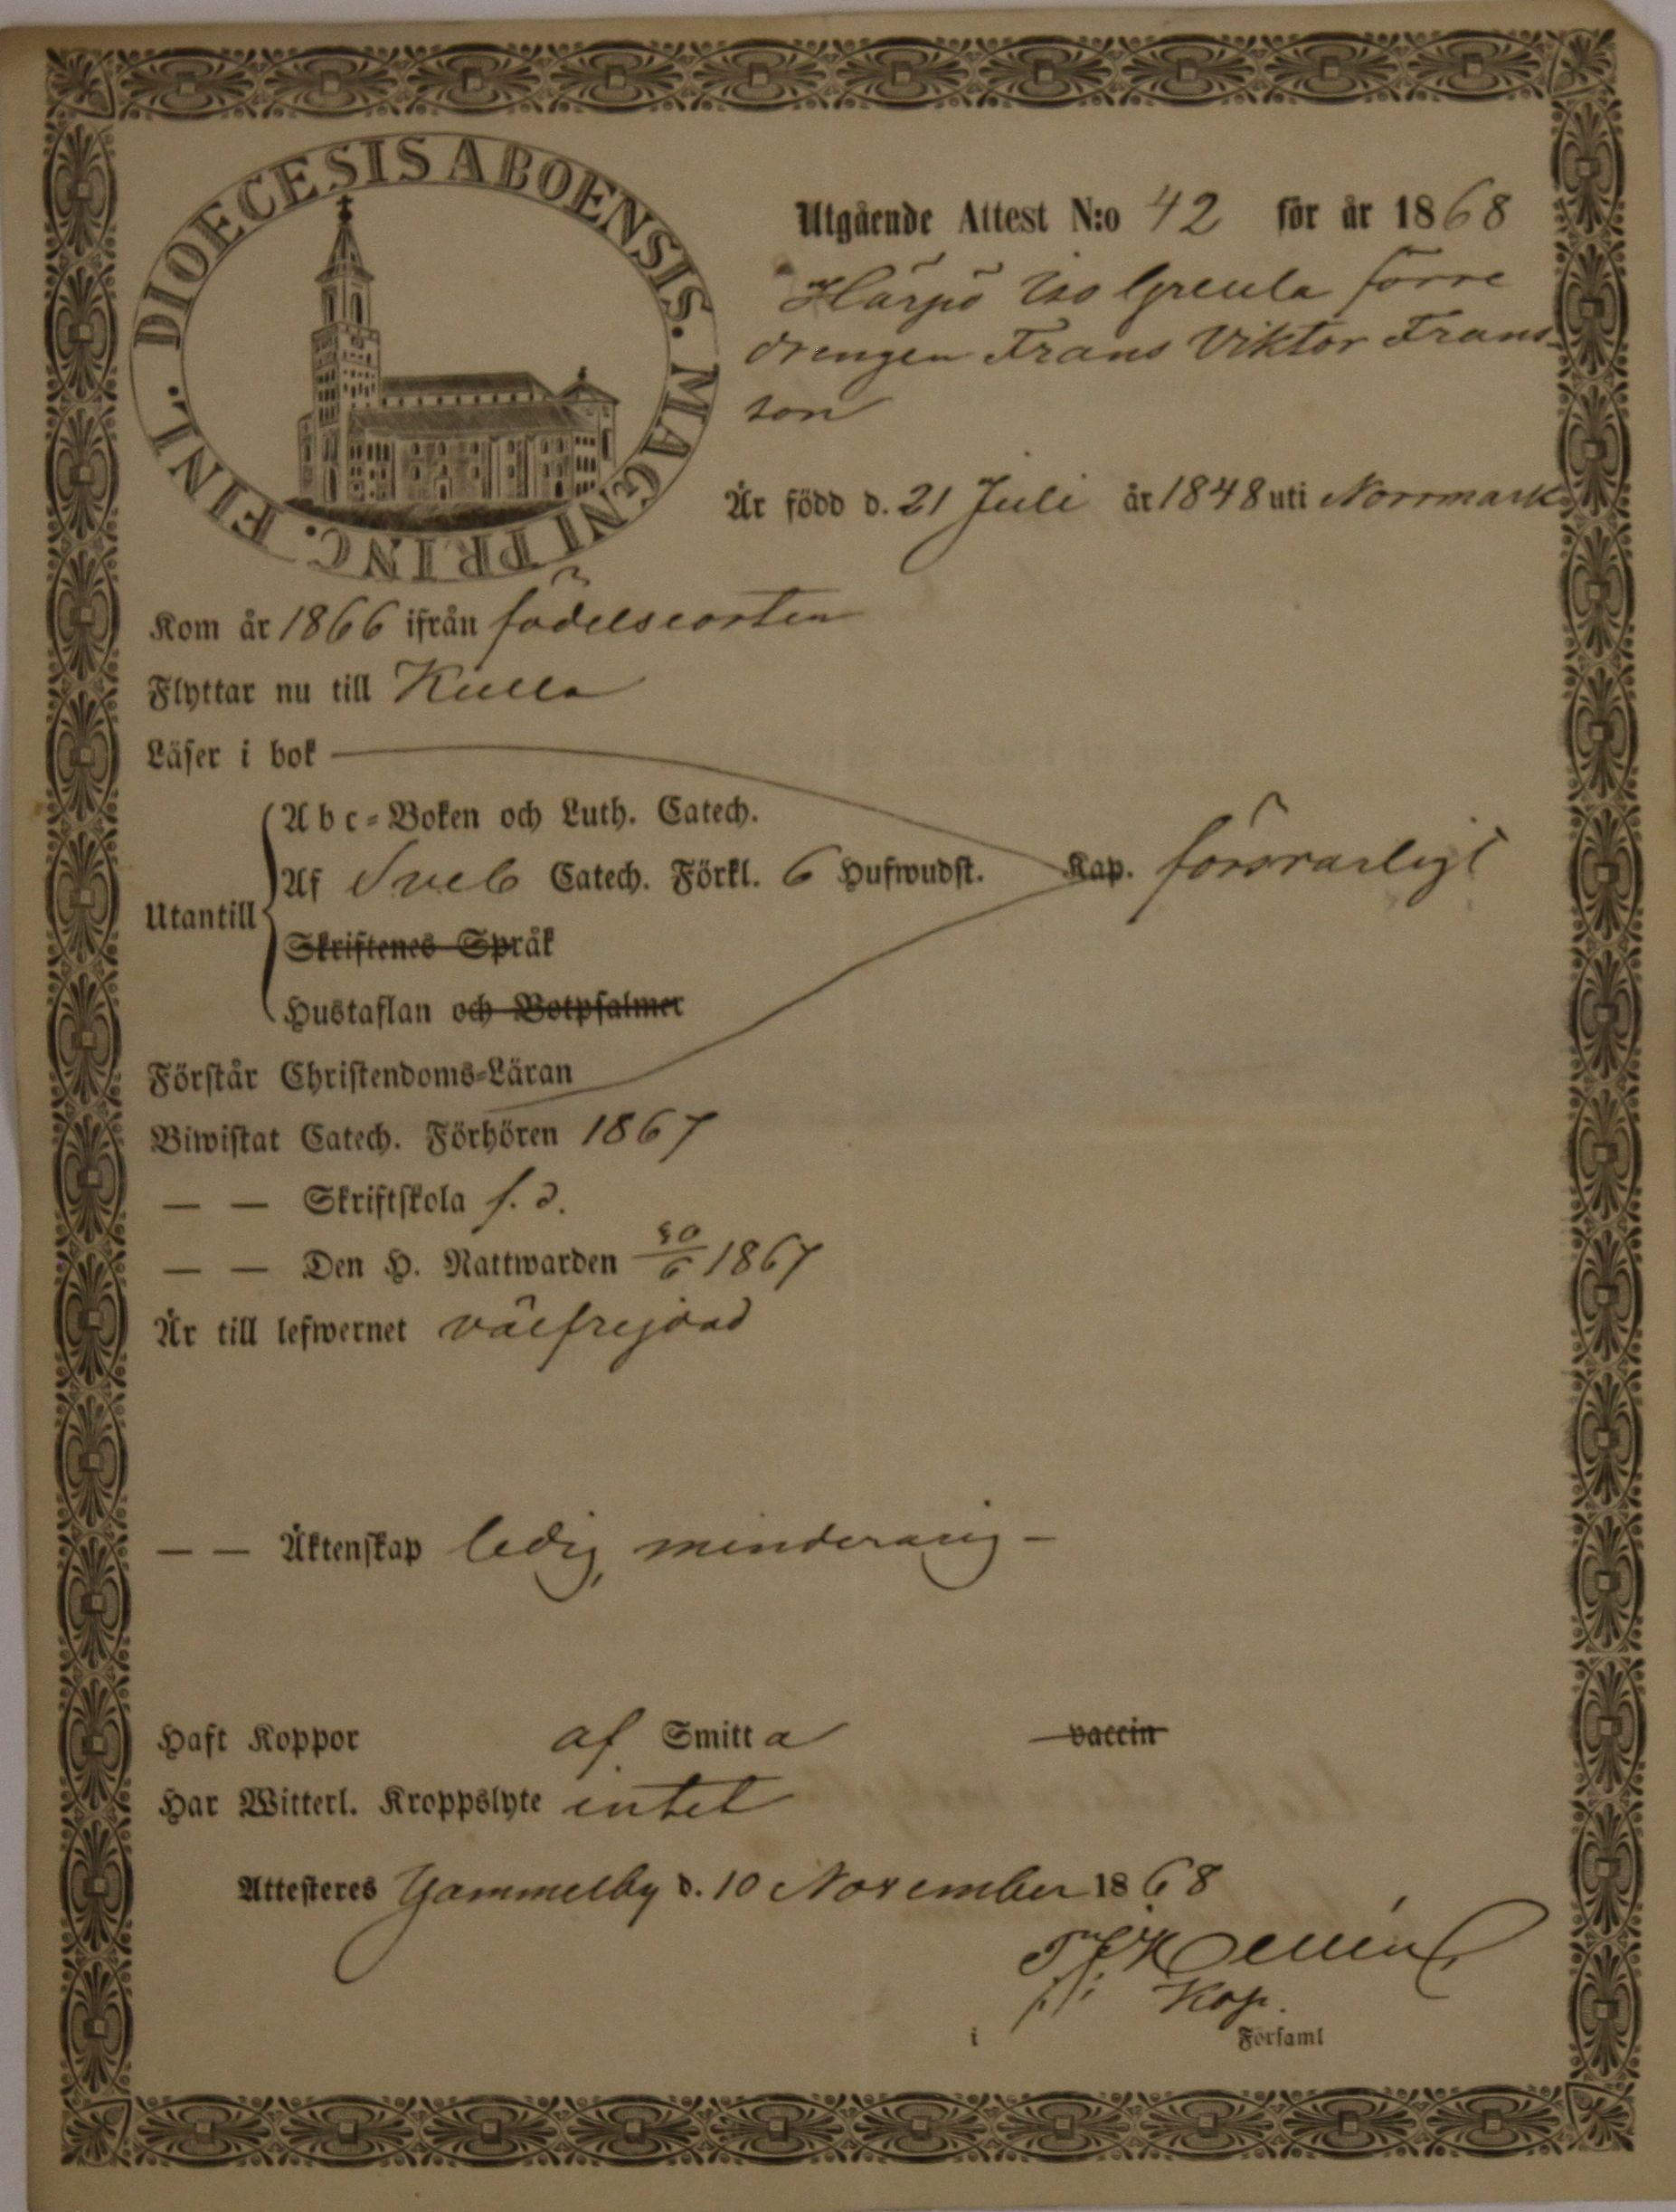 DIOECESIS ABOENSIS. MAGNI PRINC. FINL.
Utgående Attest N:o 42 för år 1868
Härpö Iso Greula förre
drengen Frans Viktor Frans-
son
Är född d. 21 Juli år 1848 uti Norrmark
Kom år 1866 ifrån födelseorten
Flyttar nu till Kulla
Läser i bok
Utantill
Abc-Boken och Luth. Catech.
Af Sveb Catech. Förkl. 6 Hufwudst. Kap. försvarligt
Skriftenes Språk
Hustaflan och Botpsalmer
Förstår Christendoms-Läran
Biwistat Catech. Förhören 1867
— — Skriftskola f. d.
— — Den H. Nattwarden 30/6 1867
Är till lefwernet välfrejdad
— — Äktenskap ledig, minderårig –
Haft Koppor af Smitta vaccin
Har Witterl. Kroppslyte intet
Attesteres Gammelby d. 10 November 1868
Kap.
i Församl